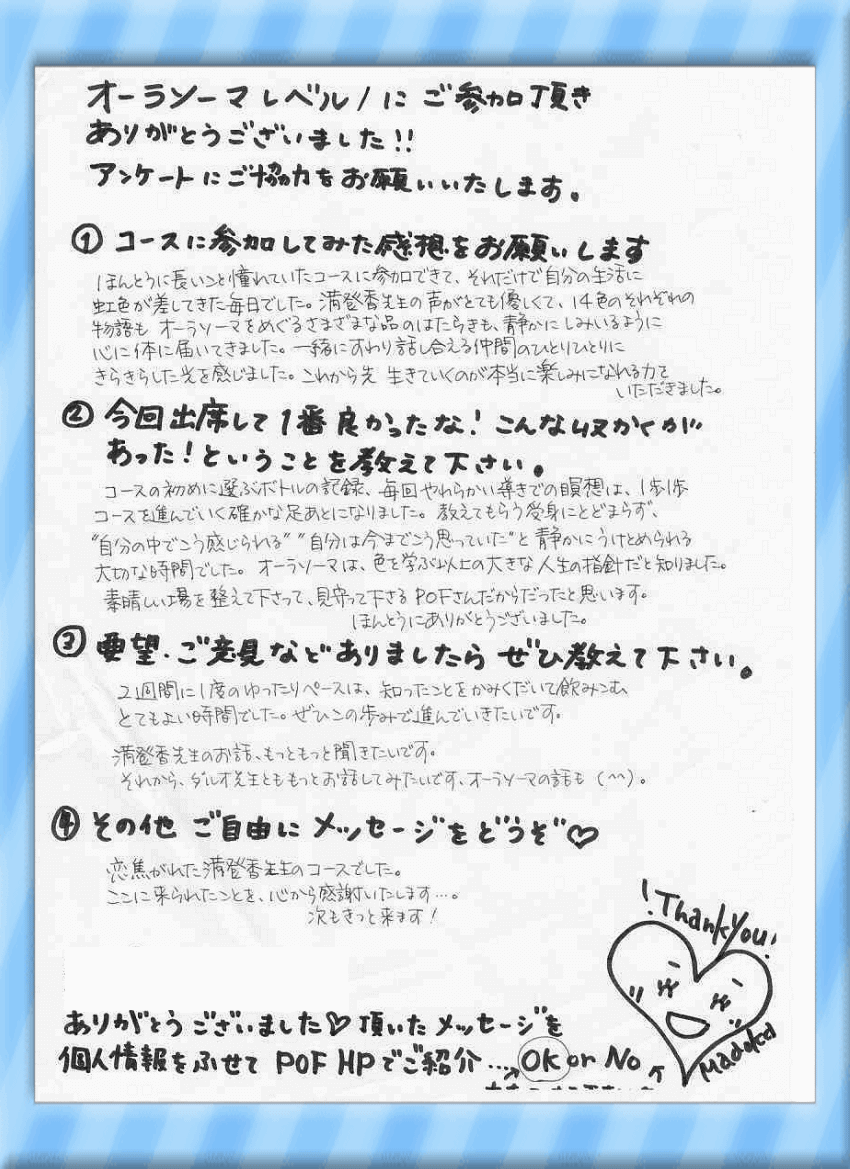 オーラソーマレベル1にご参加頂き
ありがとうございました!!
アンケートにご協力をお願いいたします。
① コースに参加してみた感想をお願いします
ほんとうに長いこと憧れていたコースに参加できて、それだけで自分の生活に
虹色が差してきた毎日でした。満登香先生の声がとても優しくて、14色のそれぞれの
物語も オーラソーマをめぐるさまざまな品のはたらきも、静かにしみいるように
心に体に届いてきました。一緒にすわり話し合える仲間のひとりひとりに
きらきらした光を感じました。これから先 生きていくのが本当に楽しみになれる力を
いただきました。
② 今回出席して1番良かったな!こんな収かくが
あった!ということを教えて下さい。
コースの初めに選ぶボトルの記録、毎回やわらかい導きでの瞑想は、1歩1歩
コースを進んでいく確かな足あとになりました。教えてもらう受身にとどまらず、
"自分の中でこう感じられる" "自分は今までこう思っていた"と静かにうけとめられる
大切な時間でした。オーラソーマは、色を学ぶ以上の大きな人生の指針だと知りました。
素晴しい場を整えて下さって、見守って下さるPOFさんだからだったと思います。
ほんとうにありがとうございました。
③ 要望・ご意見などありましたら ぜひ教えて下さい。
2週間に1度のゆったりペースは、知ったことをかみくだいて飲みこむ
とてもよい時間でした。ぜひこの歩みで進んでいきたいです。
満登香先生のお話、もっともっと聞きたいです。
それから、ダルオ先生とももっとお話してみたいです、オーラソーマの話も(^^)。
④ その他 ご自由に メッセージをどうぞ♡
恋焦がれた満登香先生のコースでした。
ここに来られたことを、心から感謝いたします…。
次もきっと来ます!
!Thank you!
Madoka
ありがとうございました♡ 頂いたメッセージを
個人情報をふせて POF HPでご紹介 … OK or No